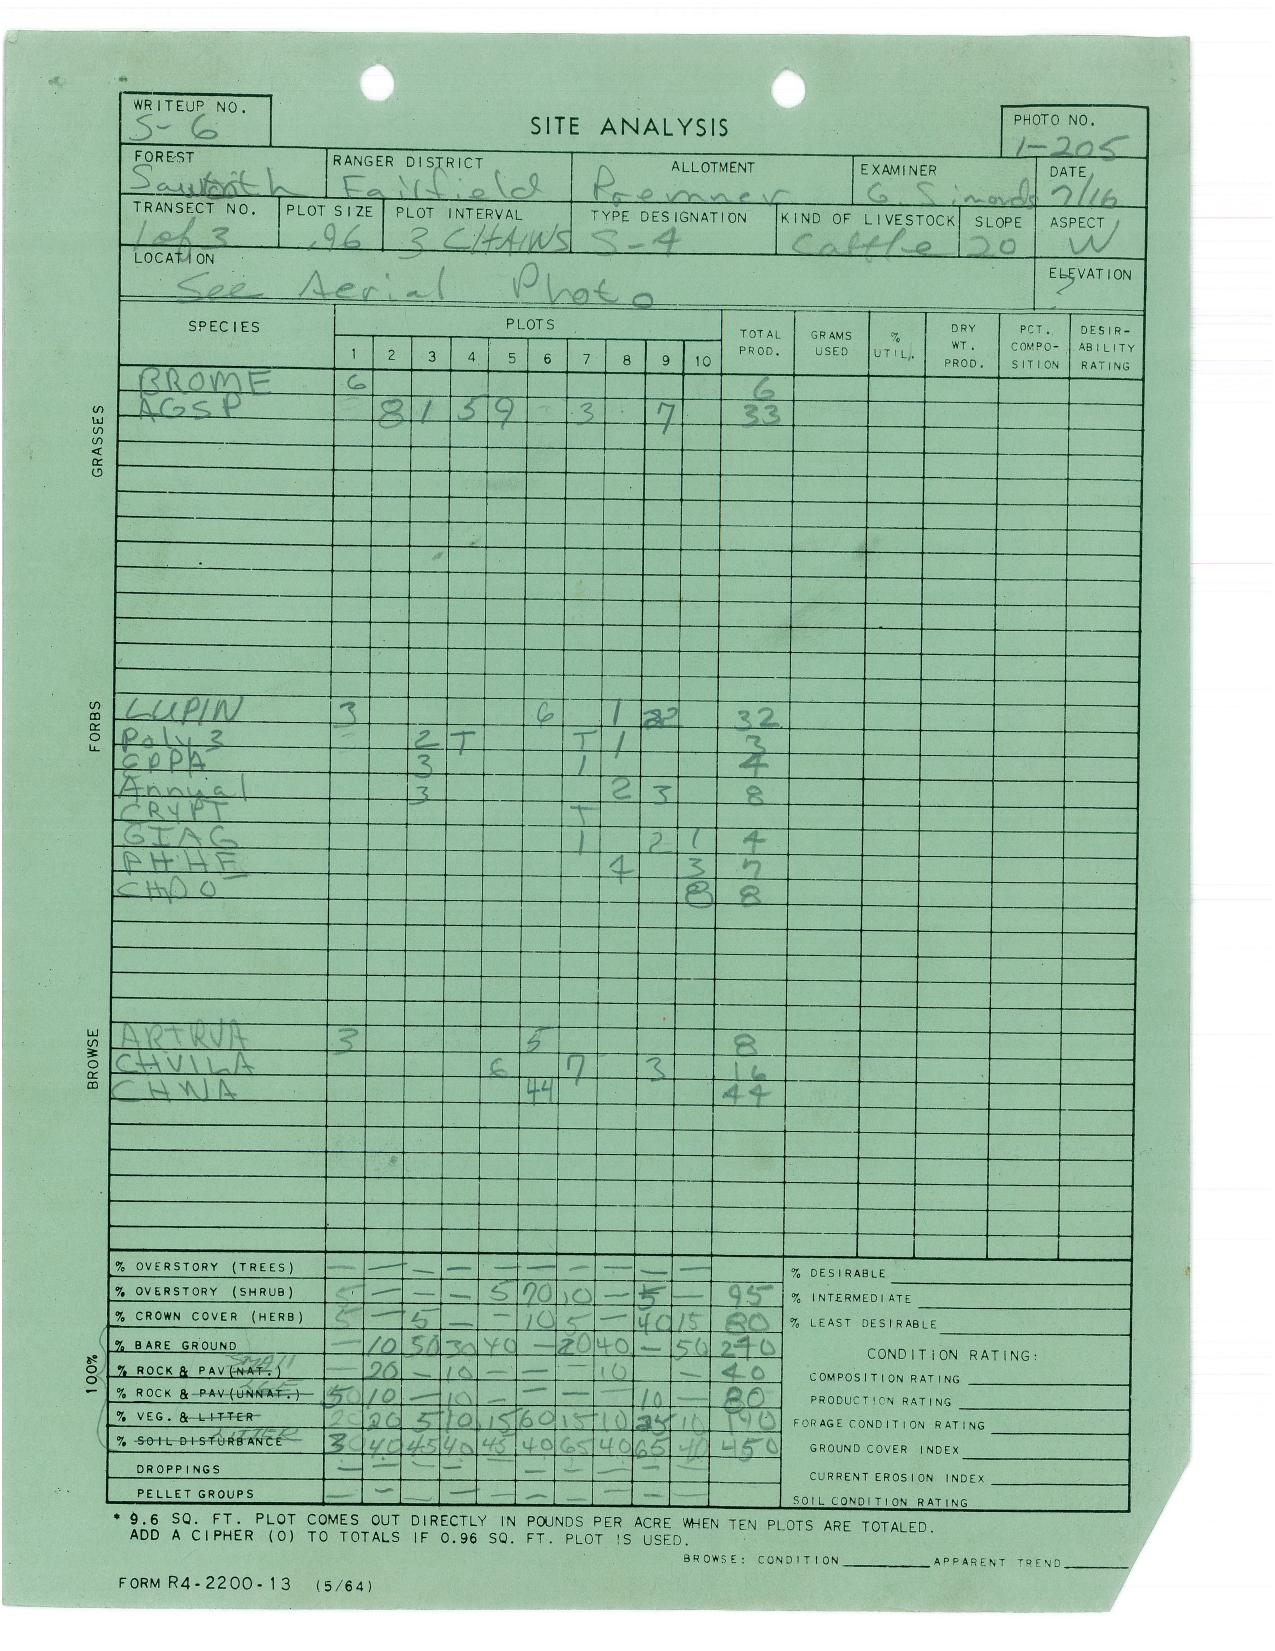 WRITEUP NO.
S-6
SITE ANALYSIS
PHOTO NO.
1-205
FOREST
Sawtooth
RANGER DISTRICT
Fairfield
ALLOTMENT
EXAMINER
G. Simonds
DATE
7/16
TRANSECT NO.
1 of 3
PLOT SIZE
.96
PLOT INTERVAL
3 CHAINS
TYPE DESIGNATION
S-4
KIND OF LIVESTOCK
Cattle
SLOPE
20
ASPECT
W
LOCATION
See Aerial Photo
ELEVATION
SPECIES PLOTS TOTAL PROD. GRAMS USED % UTIL. DRY WT. PROD. PCT. COMPOSITION DESIRABILITY RATING
1 2 3 4 5 6 7 8 9 10
GRASSES
BROME 6 6
AGSP 8 1 5 9 3 7 33
FORBS
LUPIN 3 6 1 22 32
Poly 3 2 T T 1 3
3 1 4
Annual 3 2 3 8
CRYPT T
GIAG 1 2 1 4
PHHE 4 3 7
CHDO 8 8
BROWSE
ARTRVA 3 5 8
CHVILA 6 7 3 16
CHNA 44 44
% OVERSTORY (TREES) — — — — — — — — — —
% OVERSTORY (SHRUB) 5 — — — 5 70 10 — 5 — 95
% CROWN COVER (HERB) 5 — 5 — — 10 5 — 40 15 80
100%
% BARE GROUND — 10 50 30 40 — 20 40 — 50 240
% ROCK & PAV (NAT.) SMALL — 20 — 10 — — — 10 — — 40
% ROCK & PAV (UNNAT.) 50 10 — 10 — — — — 10 — 80
% VEG. & LITTER 20 20 5 10 15 60 15 10 25 10 190
% SOIL DISTURBANCE LITTER 30 40 45 40 45 40 65 40 65 40 450
DROPPINGS — — — — — — — — —
PELLET GROUPS — — — — — — — — — —
% DESIRABLE
% INTERMEDIATE
% LEAST DESIRABLE
CONDITION RATING:
COMPOSITION RATING
PRODUCTION RATING
FORAGE CONDITION RATING
GROUND COVER INDEX
CURRENT EROSION INDEX
SOIL CONDITION RATING
* 9.6 SQ. FT. PLOT COMES OUT DIRECTLY IN POUNDS PER ACRE WHEN TEN PLOTS ARE TOTALED.
ADD A CIPHER (0) TO TOTALS IF 0.96 SQ. FT. PLOT IS USED.
BROWSE: CONDITION APPARENT TREND
FORM R4-2200-13 (5/64)